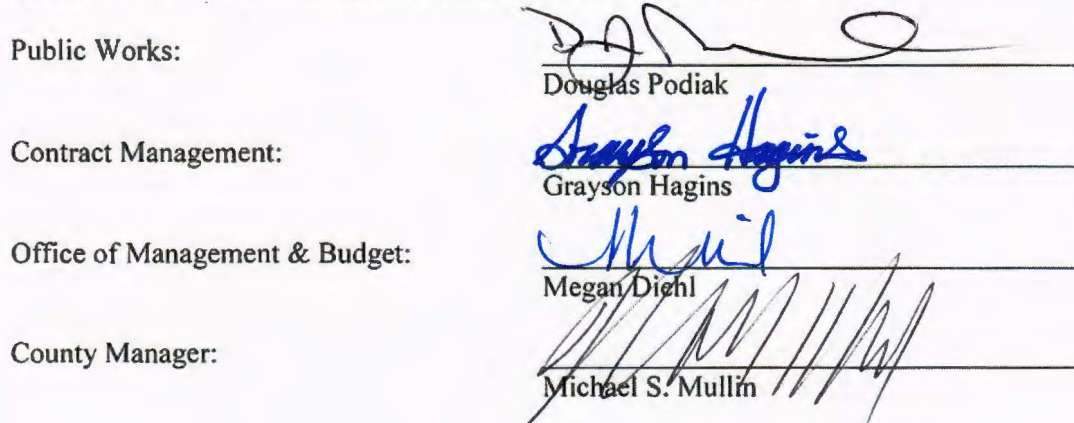 Public Works:
Douglas Podiak
Contract Management:
Grayson Hagins
Grayson Hagins
Office of Management & Budget:
Megan Diehl
County Manager:
Michael S. Mullin